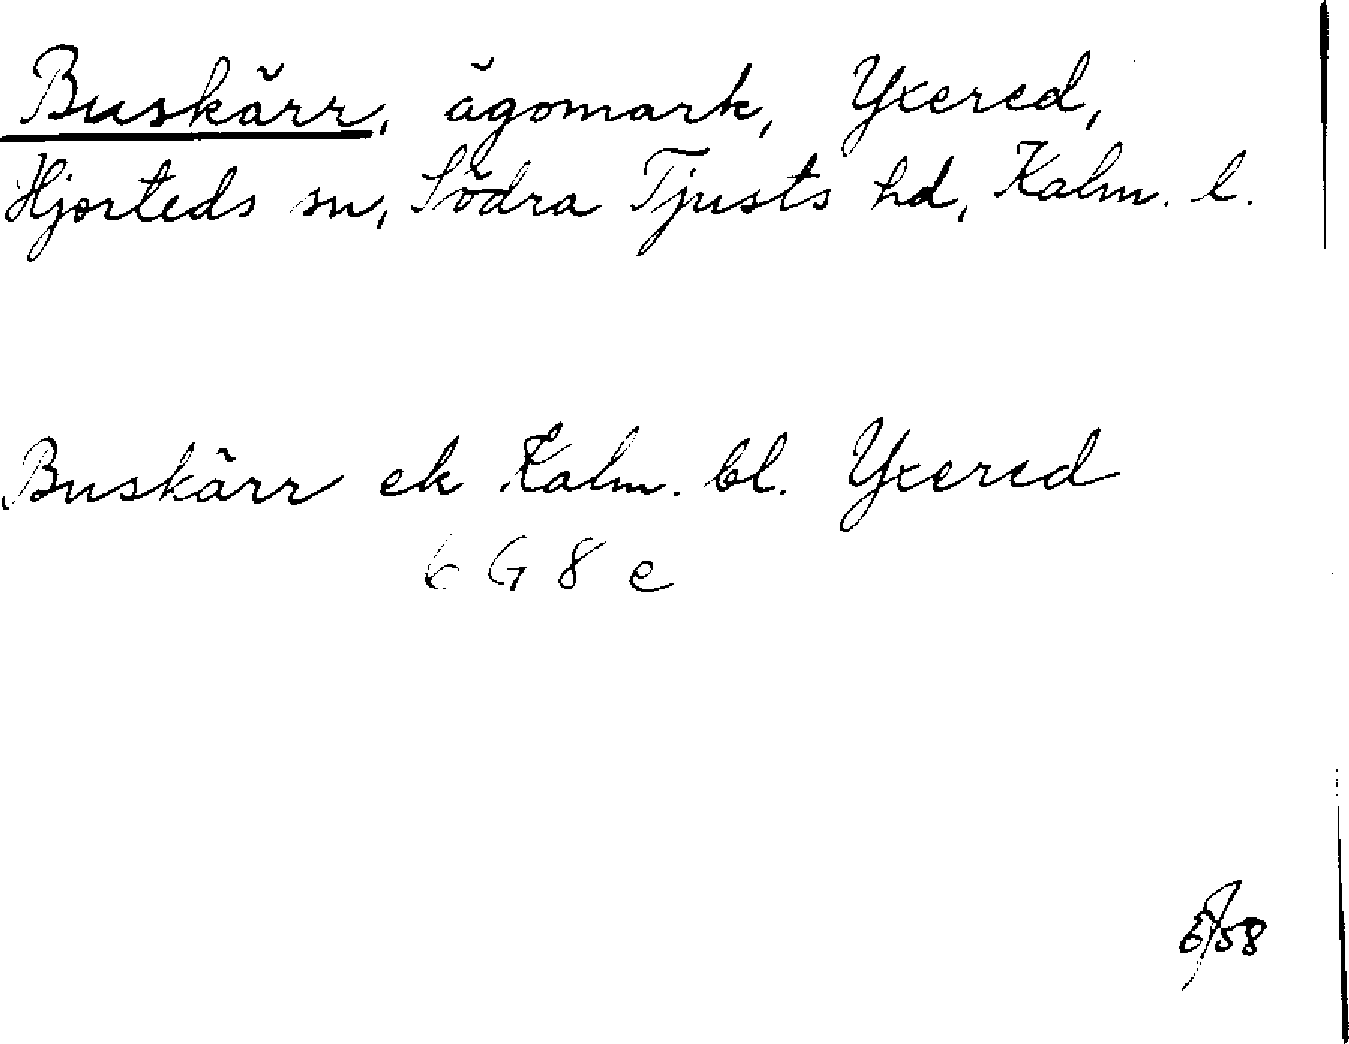 Buskärr, ägomark, Yxered,
Hjorteds sn, Södra Tjusts hd, Kalm. l.
Buskärr ek Kalm. bl. Yxered
6 G 8 e